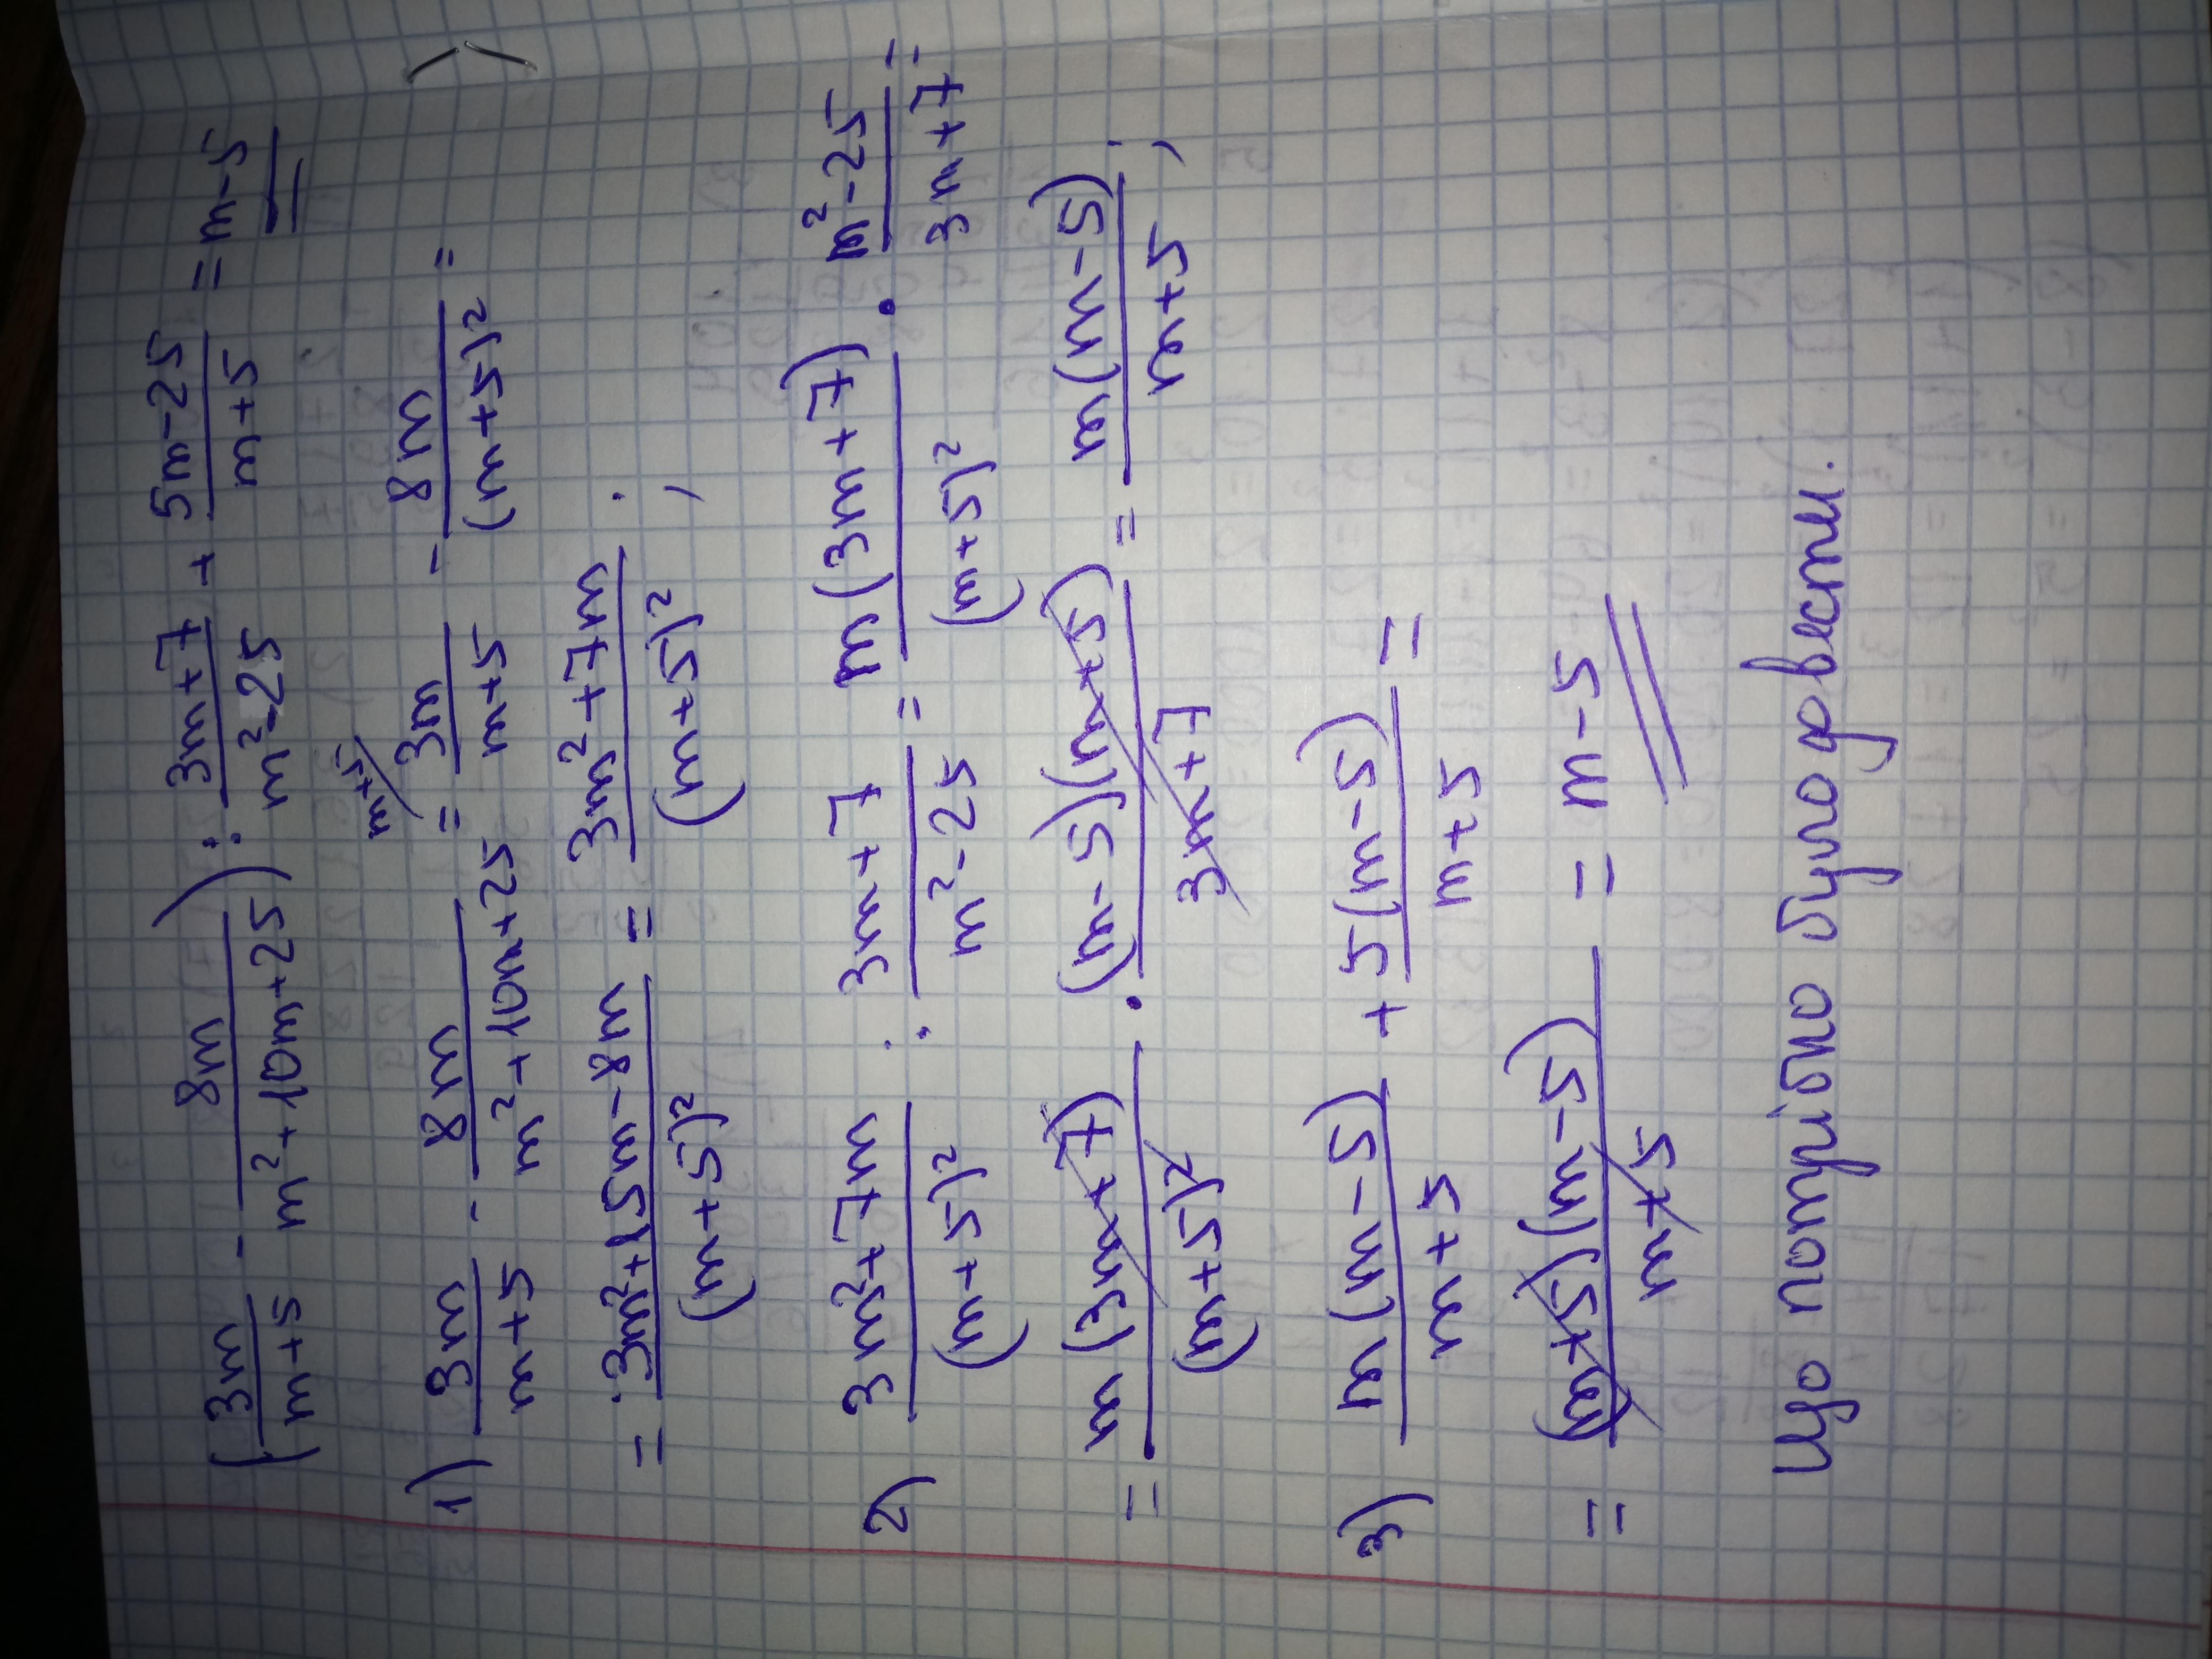 (3m/(m+5) - 8m/(m²+10m+25)) : (3m+7)/(m²-25) + (5m-25)/(m+5) = m-5
1) 3m/(m+5) - 8m/(m²+10m+25) = 3m/(m+5) ^(m+5) - 8m/(m+5)² =
= (3m²+15m-8m)/(m+5)² = (3m²+7m)/(m+5)² ;
2) (3m²+7m)/(m+5)² : (3m+7)/(m²-25) = m(3m+7)/(m+5)² · (m²-25)/(3m+7) =
= m(3m+7)/(m+5)² · (m-5)(m+5)/(3m+7) = m(m-5)/(m+5) ;
3) m(m-5)/(m+5) + 5(m-5)/(m+5) =
= (m+5)(m-5)/(m+5) = m-5
що потрібно було довести.